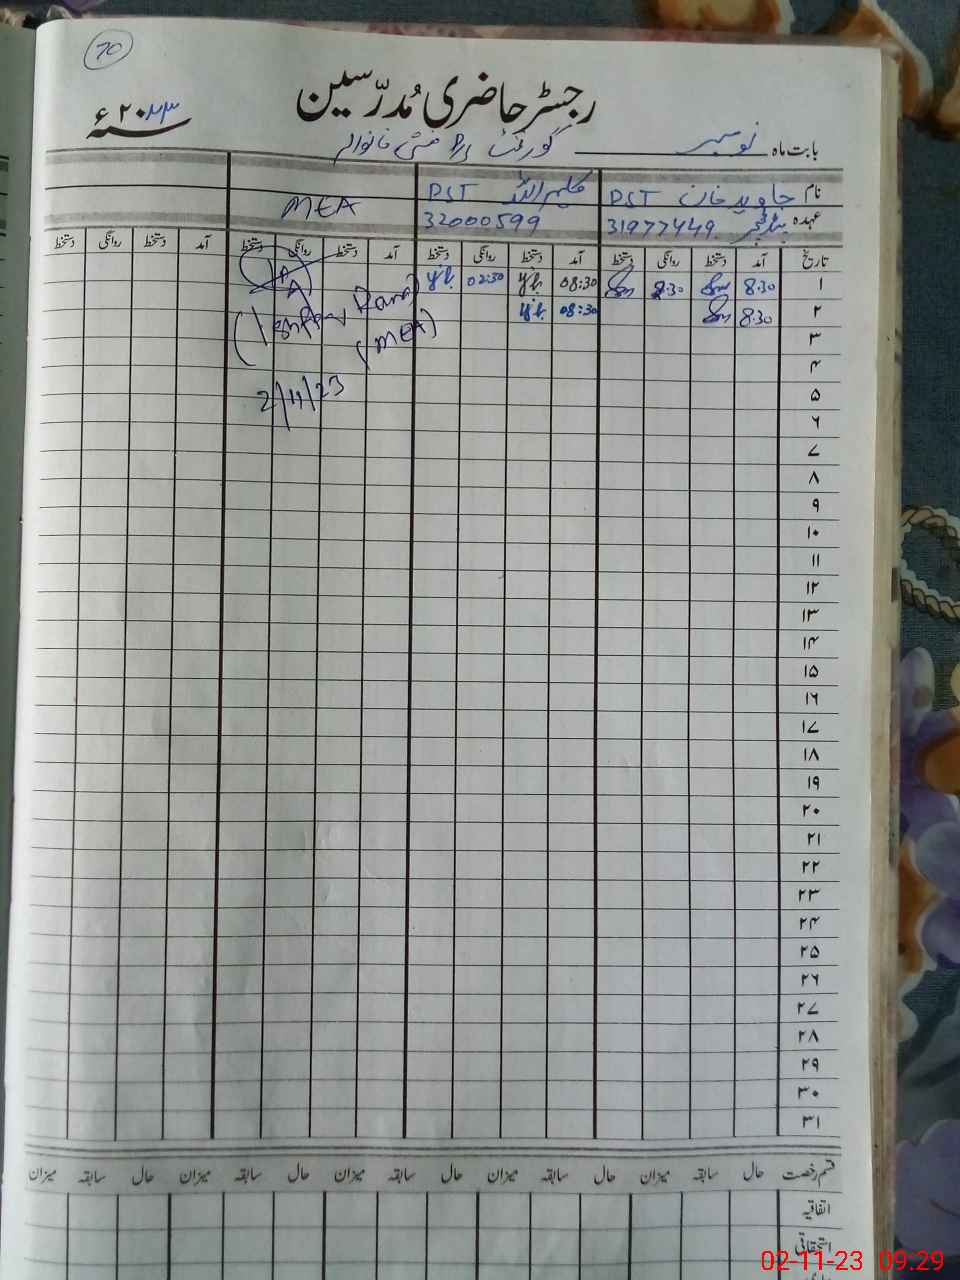 70
رجسٹر حاضری مُدرّسین
سنہ ۲۰۲۳ء
بابت ماہ نومبر گورنمنٹ
نام جاوید خان PST کلیم اللہ PST
عہدہ 31977449 32000599 MEA
تاریخ آمد دستخط روانگی دستخط آمد دستخط روانگی دستخط آمد دستخط روانگی دستخط آمد دستخط روانگی دستخط
۱ 8:30 8:30 08:30 02:30
۲ 8:30 08:30
(MEA)
۳
۴
2/11/23
۵
۶
۷
۸
۹
۱۰
۱۱
۱۲
۱۳
۱۴
۱۵
۱۶
۱۷
۱۸
۱۹
۲۰
۲۱
۲۲
۲۳
۲۴
۲۵
۲۶
۲۷
۲۸
۲۹
۳۰
۳۱
قسم رخصت حال سابقہ میزان حال سابقہ میزان حال سابقہ میزان حال سابقہ میزان حال سابقہ میزان
اتفاقیہ
استحقاقی
02-11-23 09:29